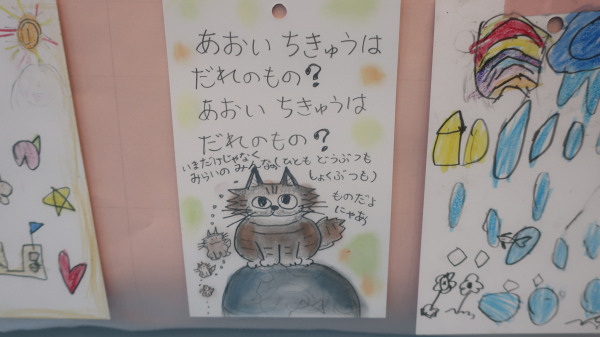 あおい ちきゅうは
だれのもの？
あおい ちきゅうは
だれのもの？
いまだけじゃなく
みらいの みんな(ひとも どうぶつも
しょくぶつも)
ものだよ
にゃあ